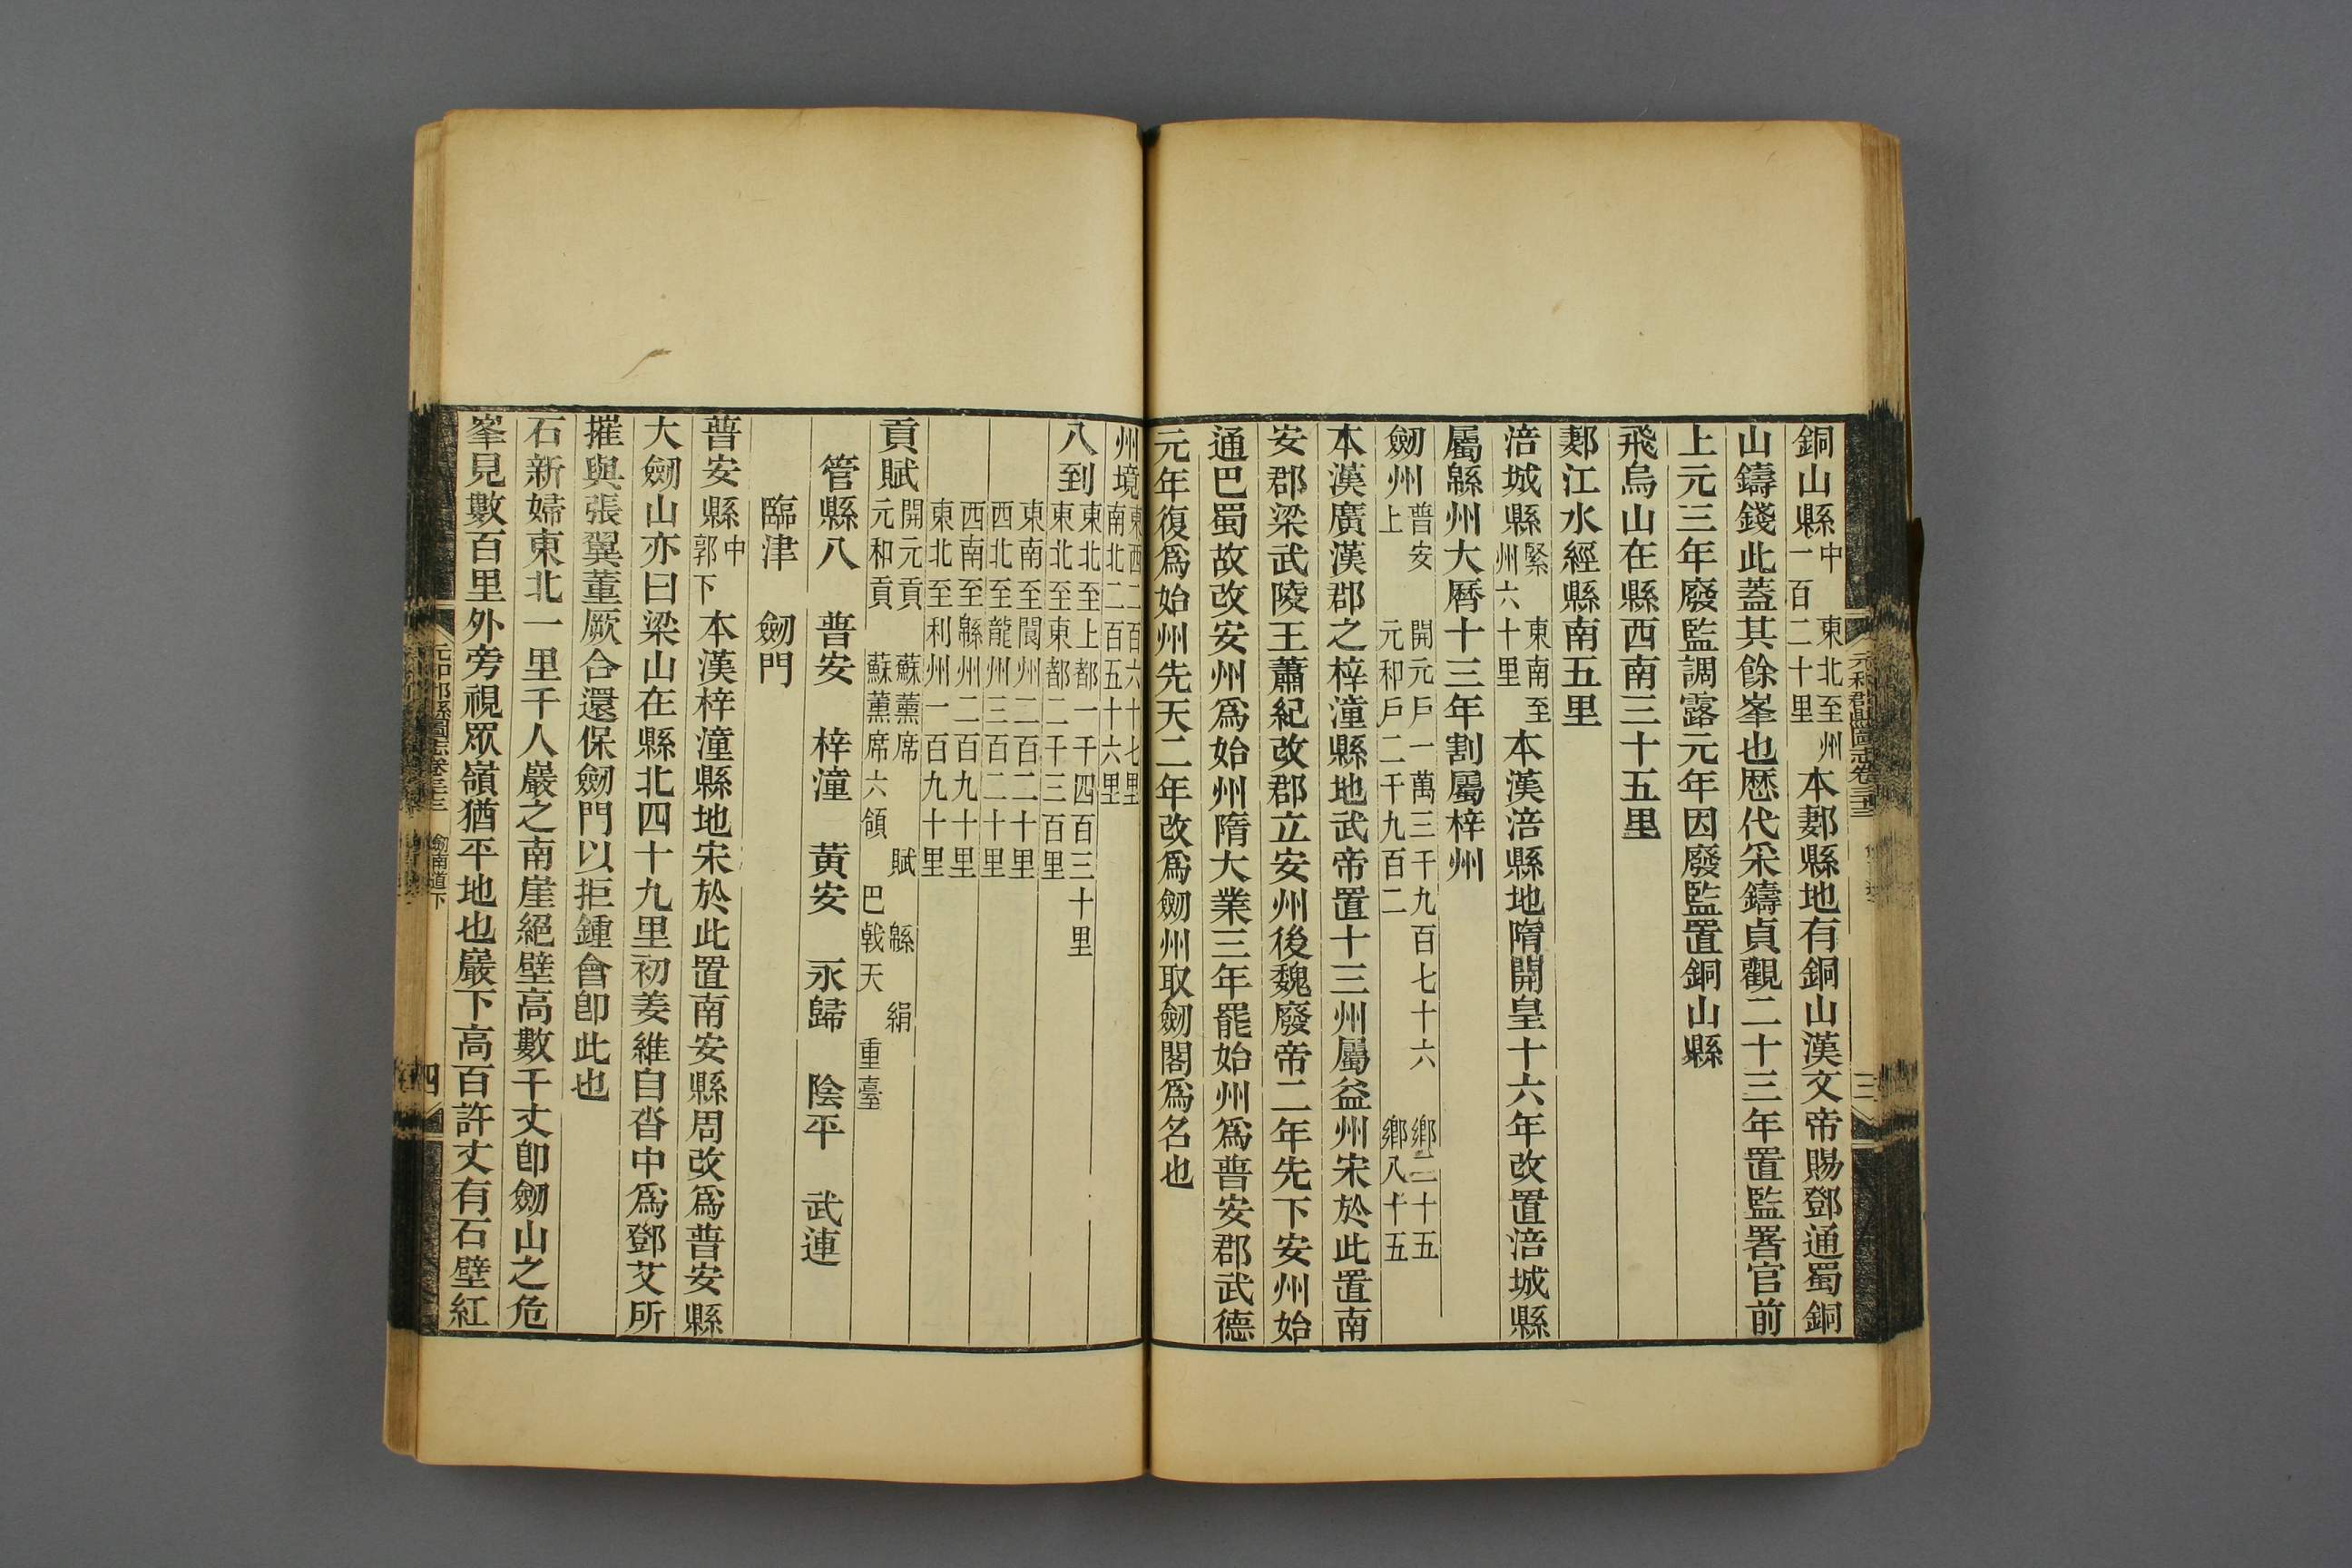 銅山縣中 東北至州一百二十里本郪縣地有銅山漢文帝賜鄧通蜀銅
山鑄錢此蓋其餘峯也歷代采鑄貞觀二十三年置監署官前
上元三年廢監調露元年因廢監置銅山縣
飛烏山在縣西南三十五里
郪江水經縣南五里
涪城縣緊 東南至州六十里本漢涪縣地隋開皇十六年改置涪城縣
屬緜州大曆十三年割屬梓州
劒州普安上 開元戶一萬三千九百七十六 鄉二十五元和戶二千九百二 鄉八十五
本漢廣漢郡之梓潼縣地武帝置十三州屬益州宋於此置南
安郡梁武陵王蕭紀改郡立安州後魏廢帝二年先下安州始
通巴蜀故改安州爲始州隋大業三年罷始州爲普安郡武德
元年復爲始州先天二年改爲劒州取劒閣爲名也
州境東西二百六十七里南北二百五十六里
八到東北至上都一千四百三十里東北至東都二千三百里
東南至閬州二百二十里西北至龍州三百二十里
西南至緜州二百九十里東北至利州一百九十里
貢賦開元貢 蘇薰席 賦 緜 絹元和貢 蘇薰席六領 巴戟天 重臺
管縣八 普安 梓潼 黃安 永歸 陰平 武連
臨津 劒門
普安縣中郭下 本漢梓潼縣地宋於此置南安縣周改爲普安縣
大劒山亦曰梁山在縣北四十九里初姜維自沓中爲鄧艾所
摧與張翼董厥合還保劒門以拒鍾會卽此也
石新婦東北一里千人巖之南崖絕壁高數千丈卽劒山之危
峯見數百里外旁視眾嶺猶平地也巖下高百許丈有石壁紅
元和郡縣圖志卷三十三 劒南道下 四